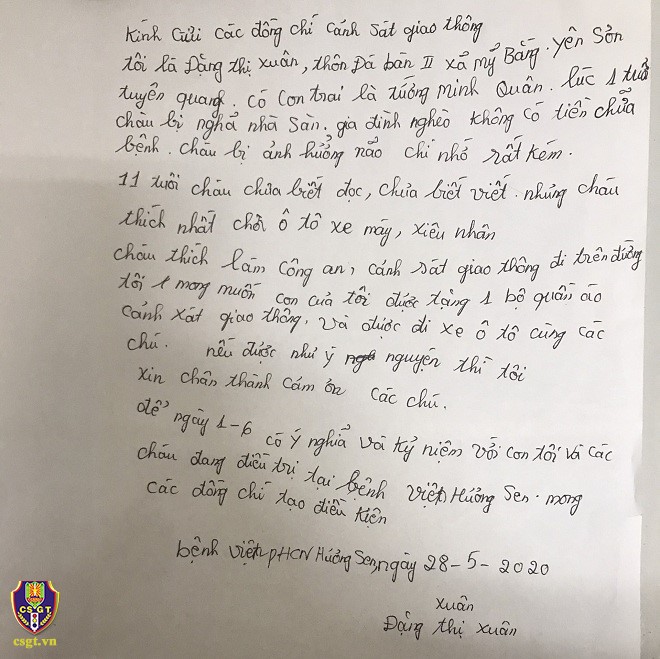 Kính Gửi các đồng chí cánh sát giao thông
tôi là Đặng thị xuân, thôn Đá bàn II xả mỹ Bằng. Yên Sởn
tuyên quang. có con trai là tướng minh Quân. lúc 1 tuổi
cháu bị nghả nhà sàn. gia đình nghèo không có tiền chữa
bệnh. cháu bị ảnh hưởng nảo chí nhớ rất kém.
11 tuổi cháu chưa biết đọc, chưa biết viết. nhưng cháu
thích nhất chơi ô tô xe máy, xiêu nhân
cháu thích làm công an, cánh sát giao thông đi trên đường
tôi 1 mong muốn con của tôi được tặng 1 bộ quần áo
cánh xát giao thông. và được đi xe ô tô cùng các
chú. nếu được như ý nguyện thì tôi
xin chân thành cám ơn các chú.
để ngày 1-6 có ý nghĩa và kỷ niệm với con tôi và các
cháu đang điều trị tại bệnh viện Hương Sen. mong
các đồng chí tạo điều kiện
bệnh viện PHCN Hương Sen, ngày 28-5-2020
xuân
Đặng thị xuân
CSGT
csgt.vn